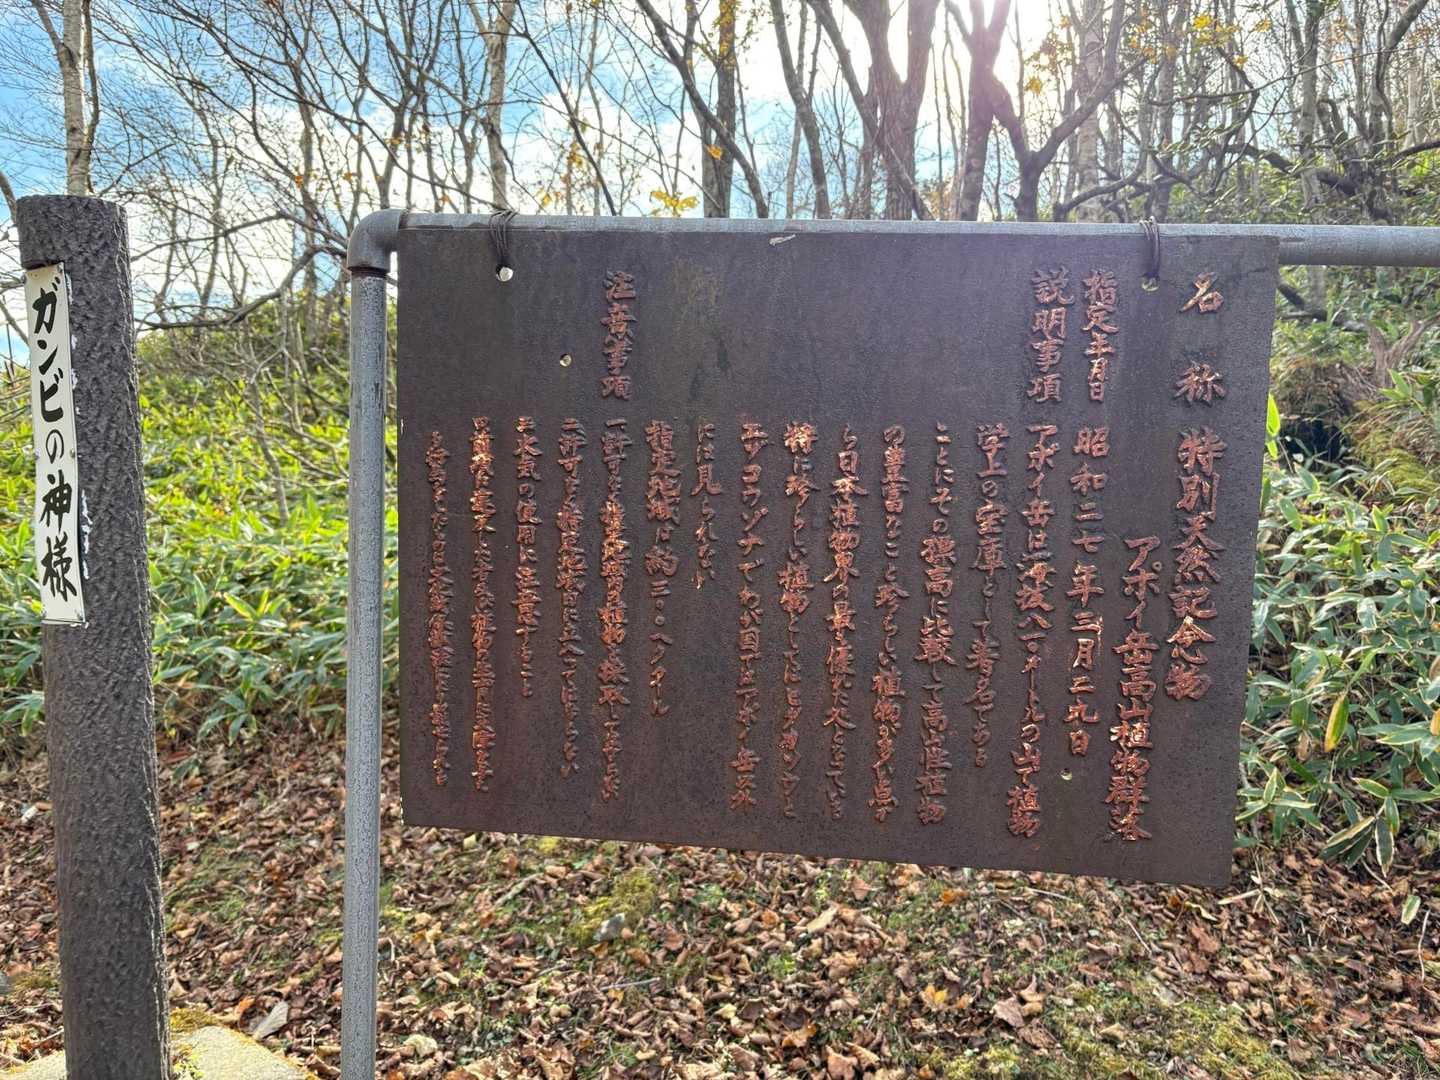 名称 特別天然記念物
アポイ岳高山植物群落
指定年月日 昭和二七年三月二九日
説明事項 アポイ岳は海抜八一〇メートルの山で植物
学上の宝庫として著名である
ことにその標高に比較して高山性植物
の豊富なことと珍らしい植物が多い点か
ら日本植物界の最も優れたものとしている
特に珍らしい植物としてはヒダカソウと
エゾコウゾリナでわが国ではアポイ岳以外
には見られない
指定地域は約三〇〇ヘクタール
注意事項 一許可なく指定地域内の植物を採取してはならない
二許可なく指定地域内に立入ってはならない
三火気の使用に注意すること
ガンビの神様